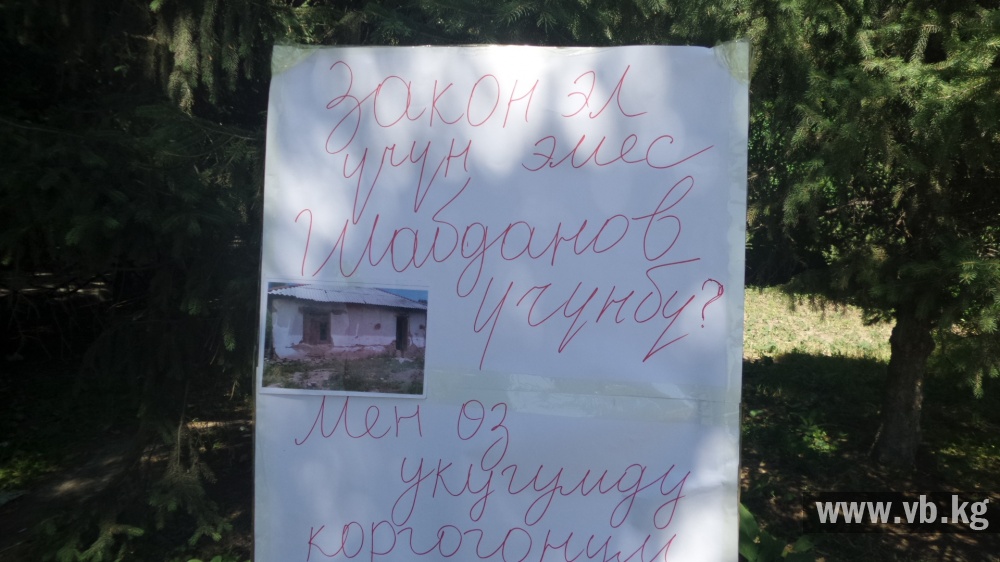 Закон эл
учун эмес
Шабданов
учунбу?
Мен оз
укугумду
коргогонум
www.vb.kg